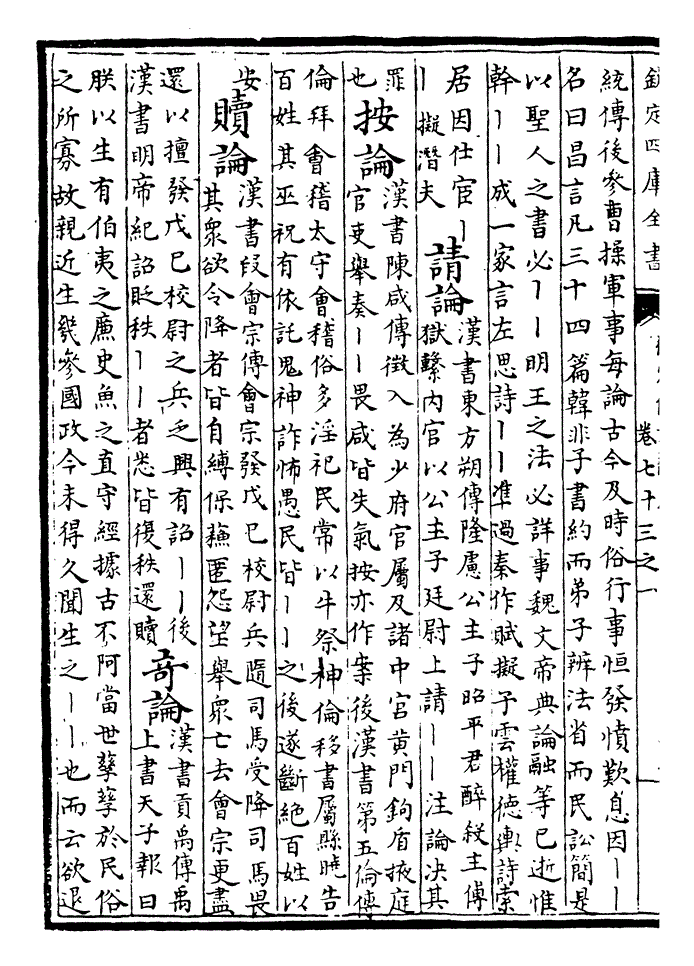 欽定四庫全書
卷七十三之一
統傳後參曹操軍事每論古今及時俗行事恒發憤歎息因〡〡
名曰昌言凡三十四篇韓非子書約而弟子辨法省而民訟簡是
以聖人之書必〡〡明王之法必詳事魏文帝典論融等已逝惟
幹〡〡成一家言左思詩〡〡準過秦作賦擬子雲權德輿詩索
居因仕宦〡
〡擬潛夫
請論
漢書東方朔傳隆慮公主子昭平君醉殺主傅
獄繫内官以公主子廷尉上請〡〡注論決其
罪
也
按論
漢書陳咸傳徵入為少府官屬及諸中宫黄門鉤盾掖庭
官吏舉奏〡〡畏咸皆失氣按亦作案後漢書第五倫傳
倫拜會稽太守會稽俗多淫祀民常以牛祭神倫移書屬縣曉告
百姓其巫祝有依託鬼神詐怖愚民皆〡〡之後遂斷絶百姓以
安
贖論
漢書段會宗傳會宗發戊巳校尉兵隨司馬受降司馬畏
其衆欲令降者皆自縛保蘇匿怨望舉衆亡去會宗更盡
還以擅發戊巳校尉之兵乏興有詔〡〡後
漢書明帝紀詔貶秩〡〡者悉皆復秩還贖
奇論
漢書貢禹傳禹
上書天子報曰
朕以生有伯夷之廉史魚之直守經據古不阿當世孳孳於民俗
之所寡故親近生幾參國政今未得久聞生之〡〡也而云欲退